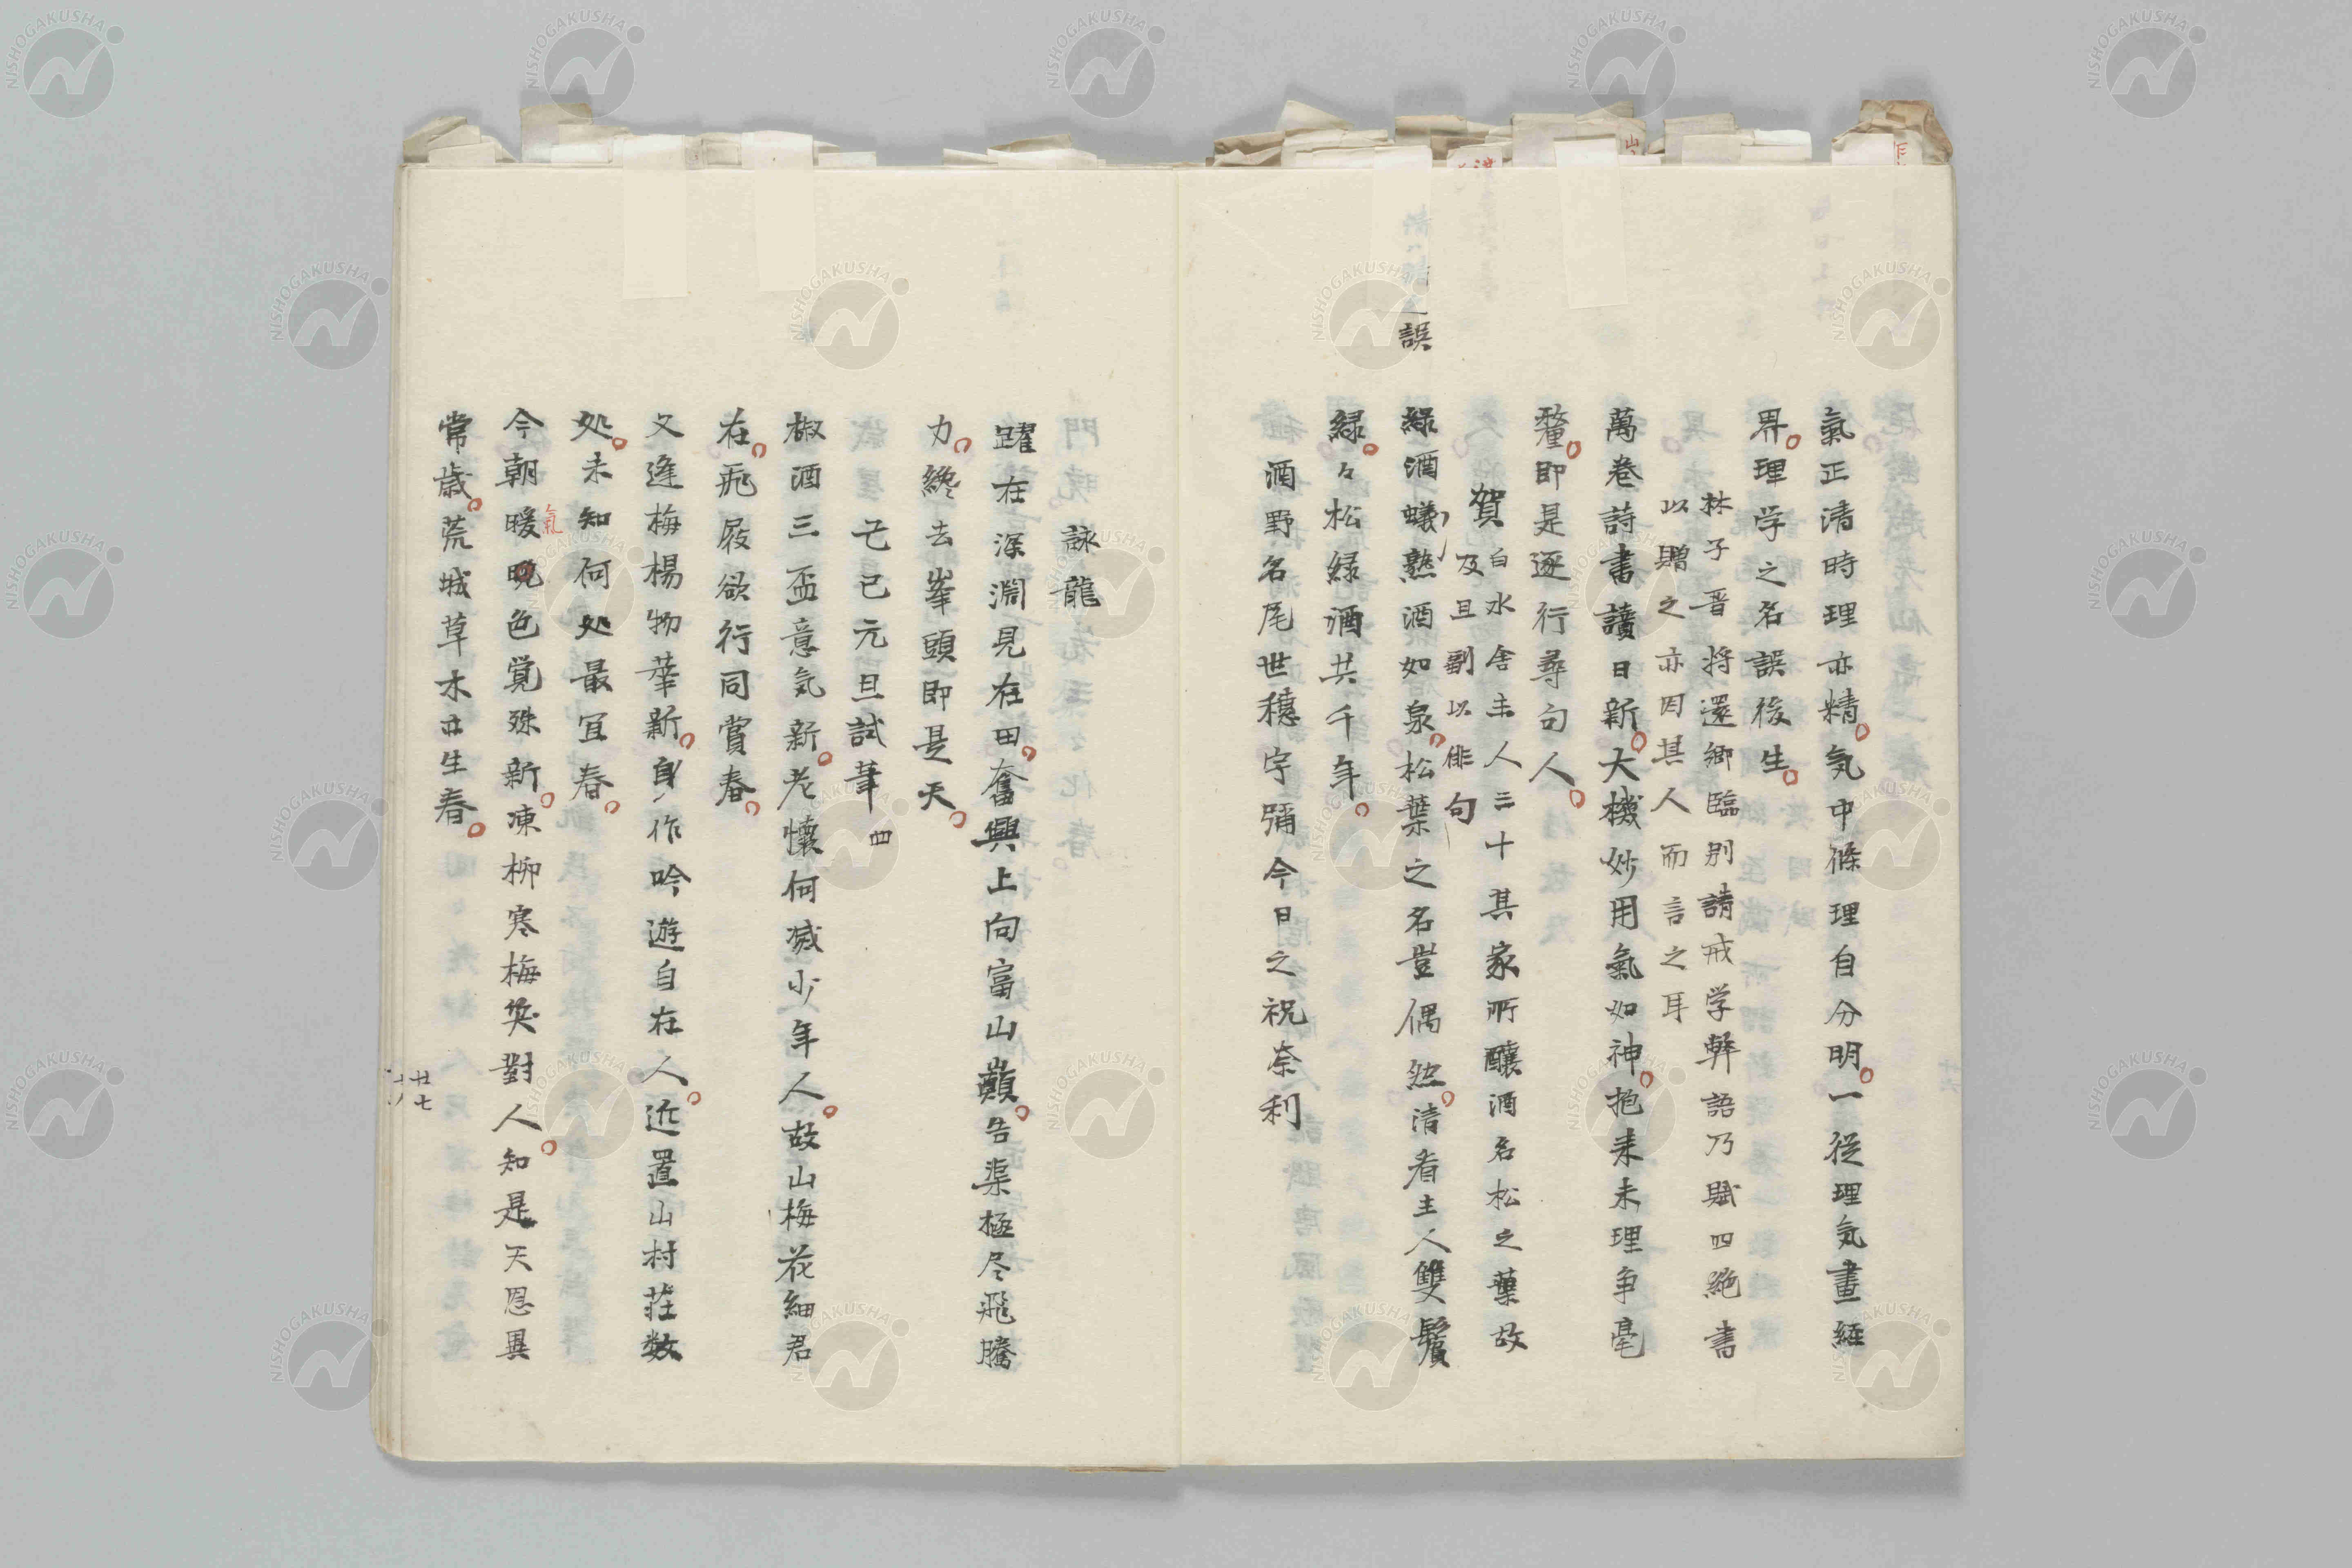 氣正清時理亦精気中條理自分明一從理気畫經
界理学之名誤後生
林子晋将還鄉臨別請戒学弊語乃賦四絶書
以贈之亦因其人而言之耳
萬卷詩書讀日新大機妙用氣如神抱来未理爭毫
釐即是逐行尋句人
賀白水舎主人三十其家所釀酒名松之葉故
及且副以俳句
誤
緑酒蟻熟酒如泉松葉之名豈偶然清看主人雙鬢
緑々松緑酒共千年
酒野名尾世穗字彌今日之祝奈利
詠龍
躍在深淵見在田奮興上向富山巔告渠極尽飛騰
力纔去峯頭即是天
乙已元旦試筆四
椒酒三盃意気新老懷何减少年人故山梅花細君
在飛屐欲行同賞春
又逢梅楊物華新身作吟遊自在人近置山村荘数
処未知何処最宜春
今朝暖晩色覚殊新凍柳寒梅笑對人知是天恩異
氣
常歳荒城草木亦生春
廿七
NISHOGAKUSHA